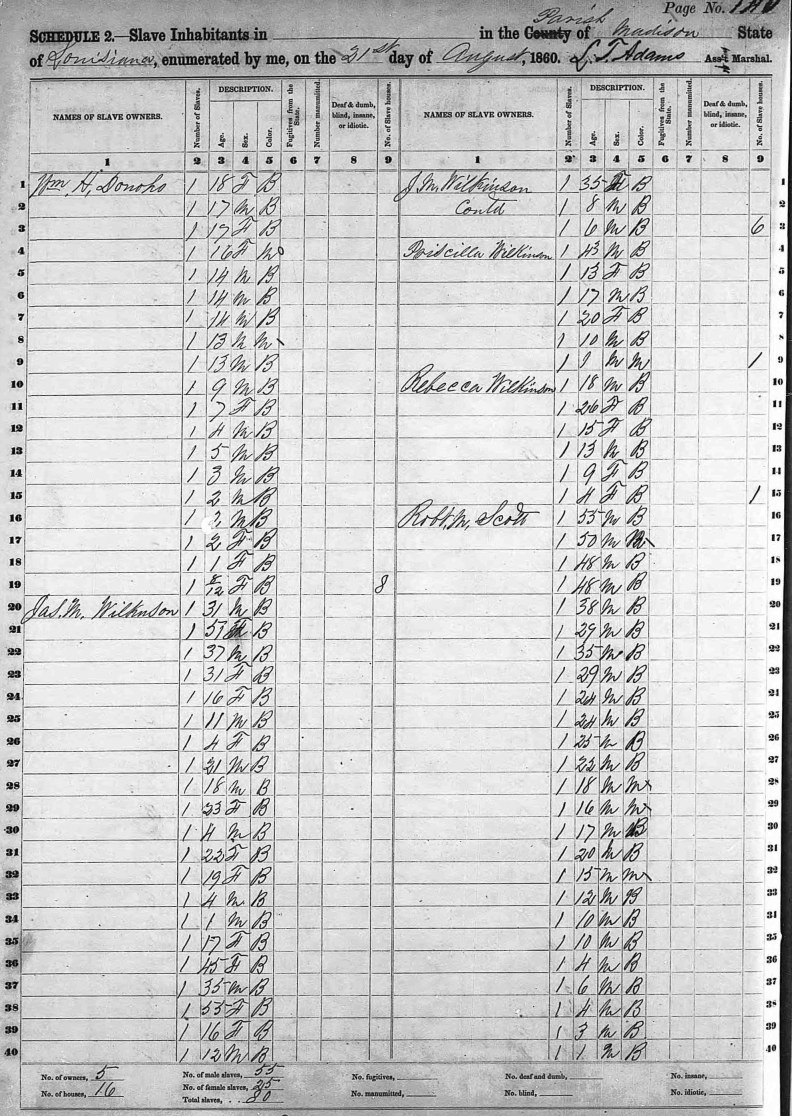 Page No.
SCHEDULE 2.—Slave Inhabitants in in the County Parish of Madison State
of Louisiana, enumerated by me, on the 21st day of August, 1860. L. T. Adams Ass't Marshal.
NAMES OF SLAVE OWNERS. Number of Slaves. DESCRIPTION. Age. Sex. Color. Fugitives from the State. Number manumitted. Deaf & dumb, blind, insane, or idiotic. No. of Slave houses. NAMES OF SLAVE OWNERS. Number of Slaves. DESCRIPTION. Age. Sex. Color. Fugitives from the State. Number manumitted. Deaf & dumb, blind, insane, or idiotic. No. of Slave houses.
1 2 3 4 5 6 7 8 9 1 2 3 4 5 6 7 8 9
1 Wm H. Donoho 1 18 F B J. M. Wilkinson 1 35 F B 1
2 1 17 M B Contd 1 8 M B 2
3 1 17 F B 1 6 M B 6 3
4 1 16 F M Priscilla Wilkinson 1 43 M B 4
5 1 14 M B 1 13 F B 5
6 1 14 M B 1 17 M B 6
7 1 14 M B 1 20 F B 7
8 1 13 M M 1 10 M B 8
9 1 13 M B 1 M M 1 9
10 1 9 M B Rebecca Wilkinson 1 18 M B 10
11 1 7 F B 1 26 F B 11
12 1 4 M B 1 15 F B 12
13 1 5 M B 1 13 M B 13
14 1 3 M B 1 9 F B 14
15 1 2 M B 1 4 F B 1 15
16 1 M B Robt. M. Scott 1 55 M B 16
17 1 2 F B 1 50 M M 17
18 1 1 F B 1 48 M B 18
19 1 8/12 F B 8 1 48 M B 19
20 Jas. M. Wilkinson 1 31 M B 1 38 M B 20
21 1 51 F B 1 29 M B 21
22 1 37 M B 1 35 M B 22
23 1 31 F B 1 29 M B 23
24 1 16 F B 1 24 M B 24
25 1 11 M B 1 24 M B 25
26 1 4 F B 1 25 M B 26
27 1 21 M B 1 22 M B 27
28 1 18 M B 1 18 M M 28
29 1 23 F B 1 16 M M 29
30 1 4 M B 1 17 M B 30
31 1 22 F B 1 20 M B 31
32 1 19 F B 1 15 M M 32
33 1 4 M B 1 12 M B 33
34 1 1 M B 1 10 M B 34
35 1 17 F B 1 10 M B 35
36 1 45 F B 1 4 M B 36
37 1 35 M B 1 6 M B 37
38 1 55 F B 1 4 M B 38
39 1 16 F B 1 3 M B 39
40 1 12 M B 1 1 M B 40
No. of owners, 5 No. of male slaves, 55 No. fugitives, No. of deaf and dumb, No. of insane,
No. of houses, 16 No. of female slaves, 25 No. manumitted, No. of blind, No. of idiotic,
Total slaves, 80